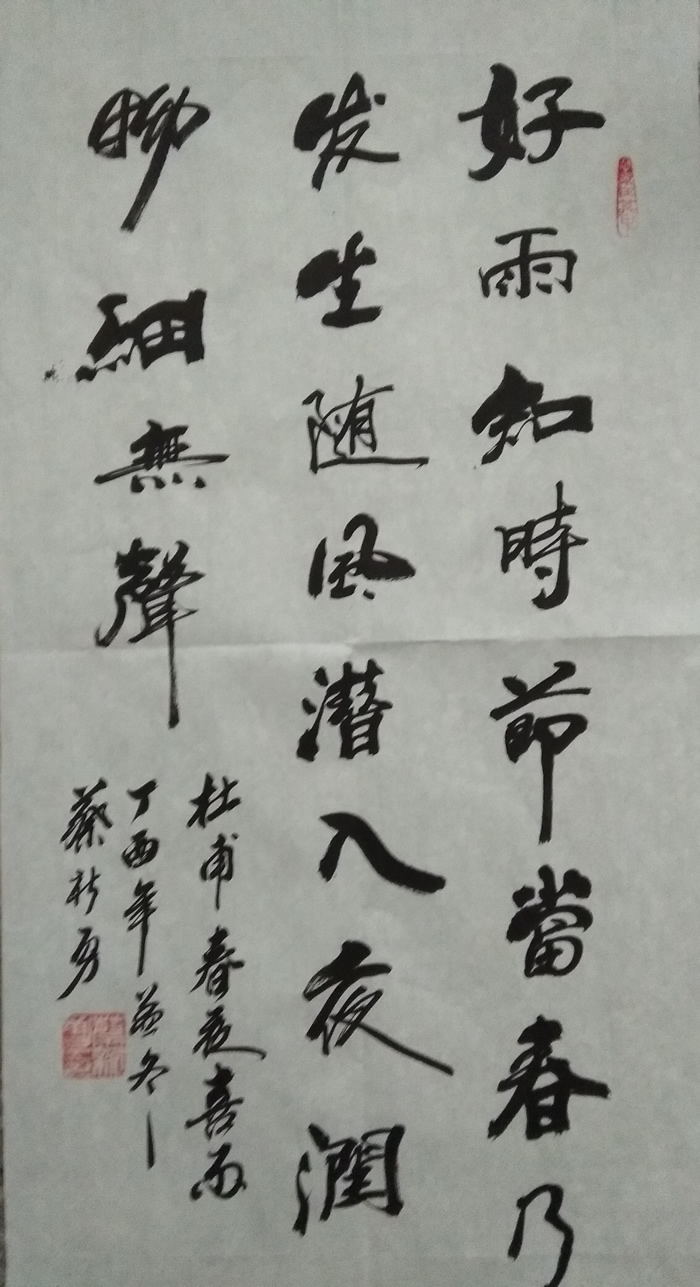 好雨知時節當春乃
发生随风潜入夜潤
物細無聲
杜甫春夜喜雨
丁酉年
蔡新勇